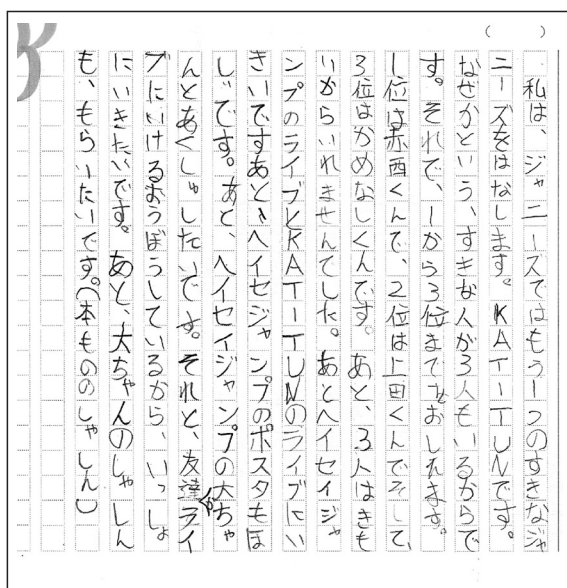 私は、ジャニーズではもう一つのすきなジャ
ニーズをはなします。KAT-TUNです。
なぜかという、すきな人が3人もいるからで
す。それで、1から3位までおしえます。
1位は赤西くんで、2位は上田くんでそして、
3位はかめなしくんです。あと、3人はきも
いからいれませんでした。あとヘイセイジャ
ンプのライブとKAT-TUNのライブにい
きいですあと、ヘイセジャンプのポスタもほ
しいです。あと、ヘイセイジャンプの大ちゃ
んとあくしゅしたいです。それと、友達がライ
ブにいけるおうぼうしているから、いっしょ
にいきたいです。あと、大ちゃんのしゃしん
も、もらいたいです。(本もののしゃしん)